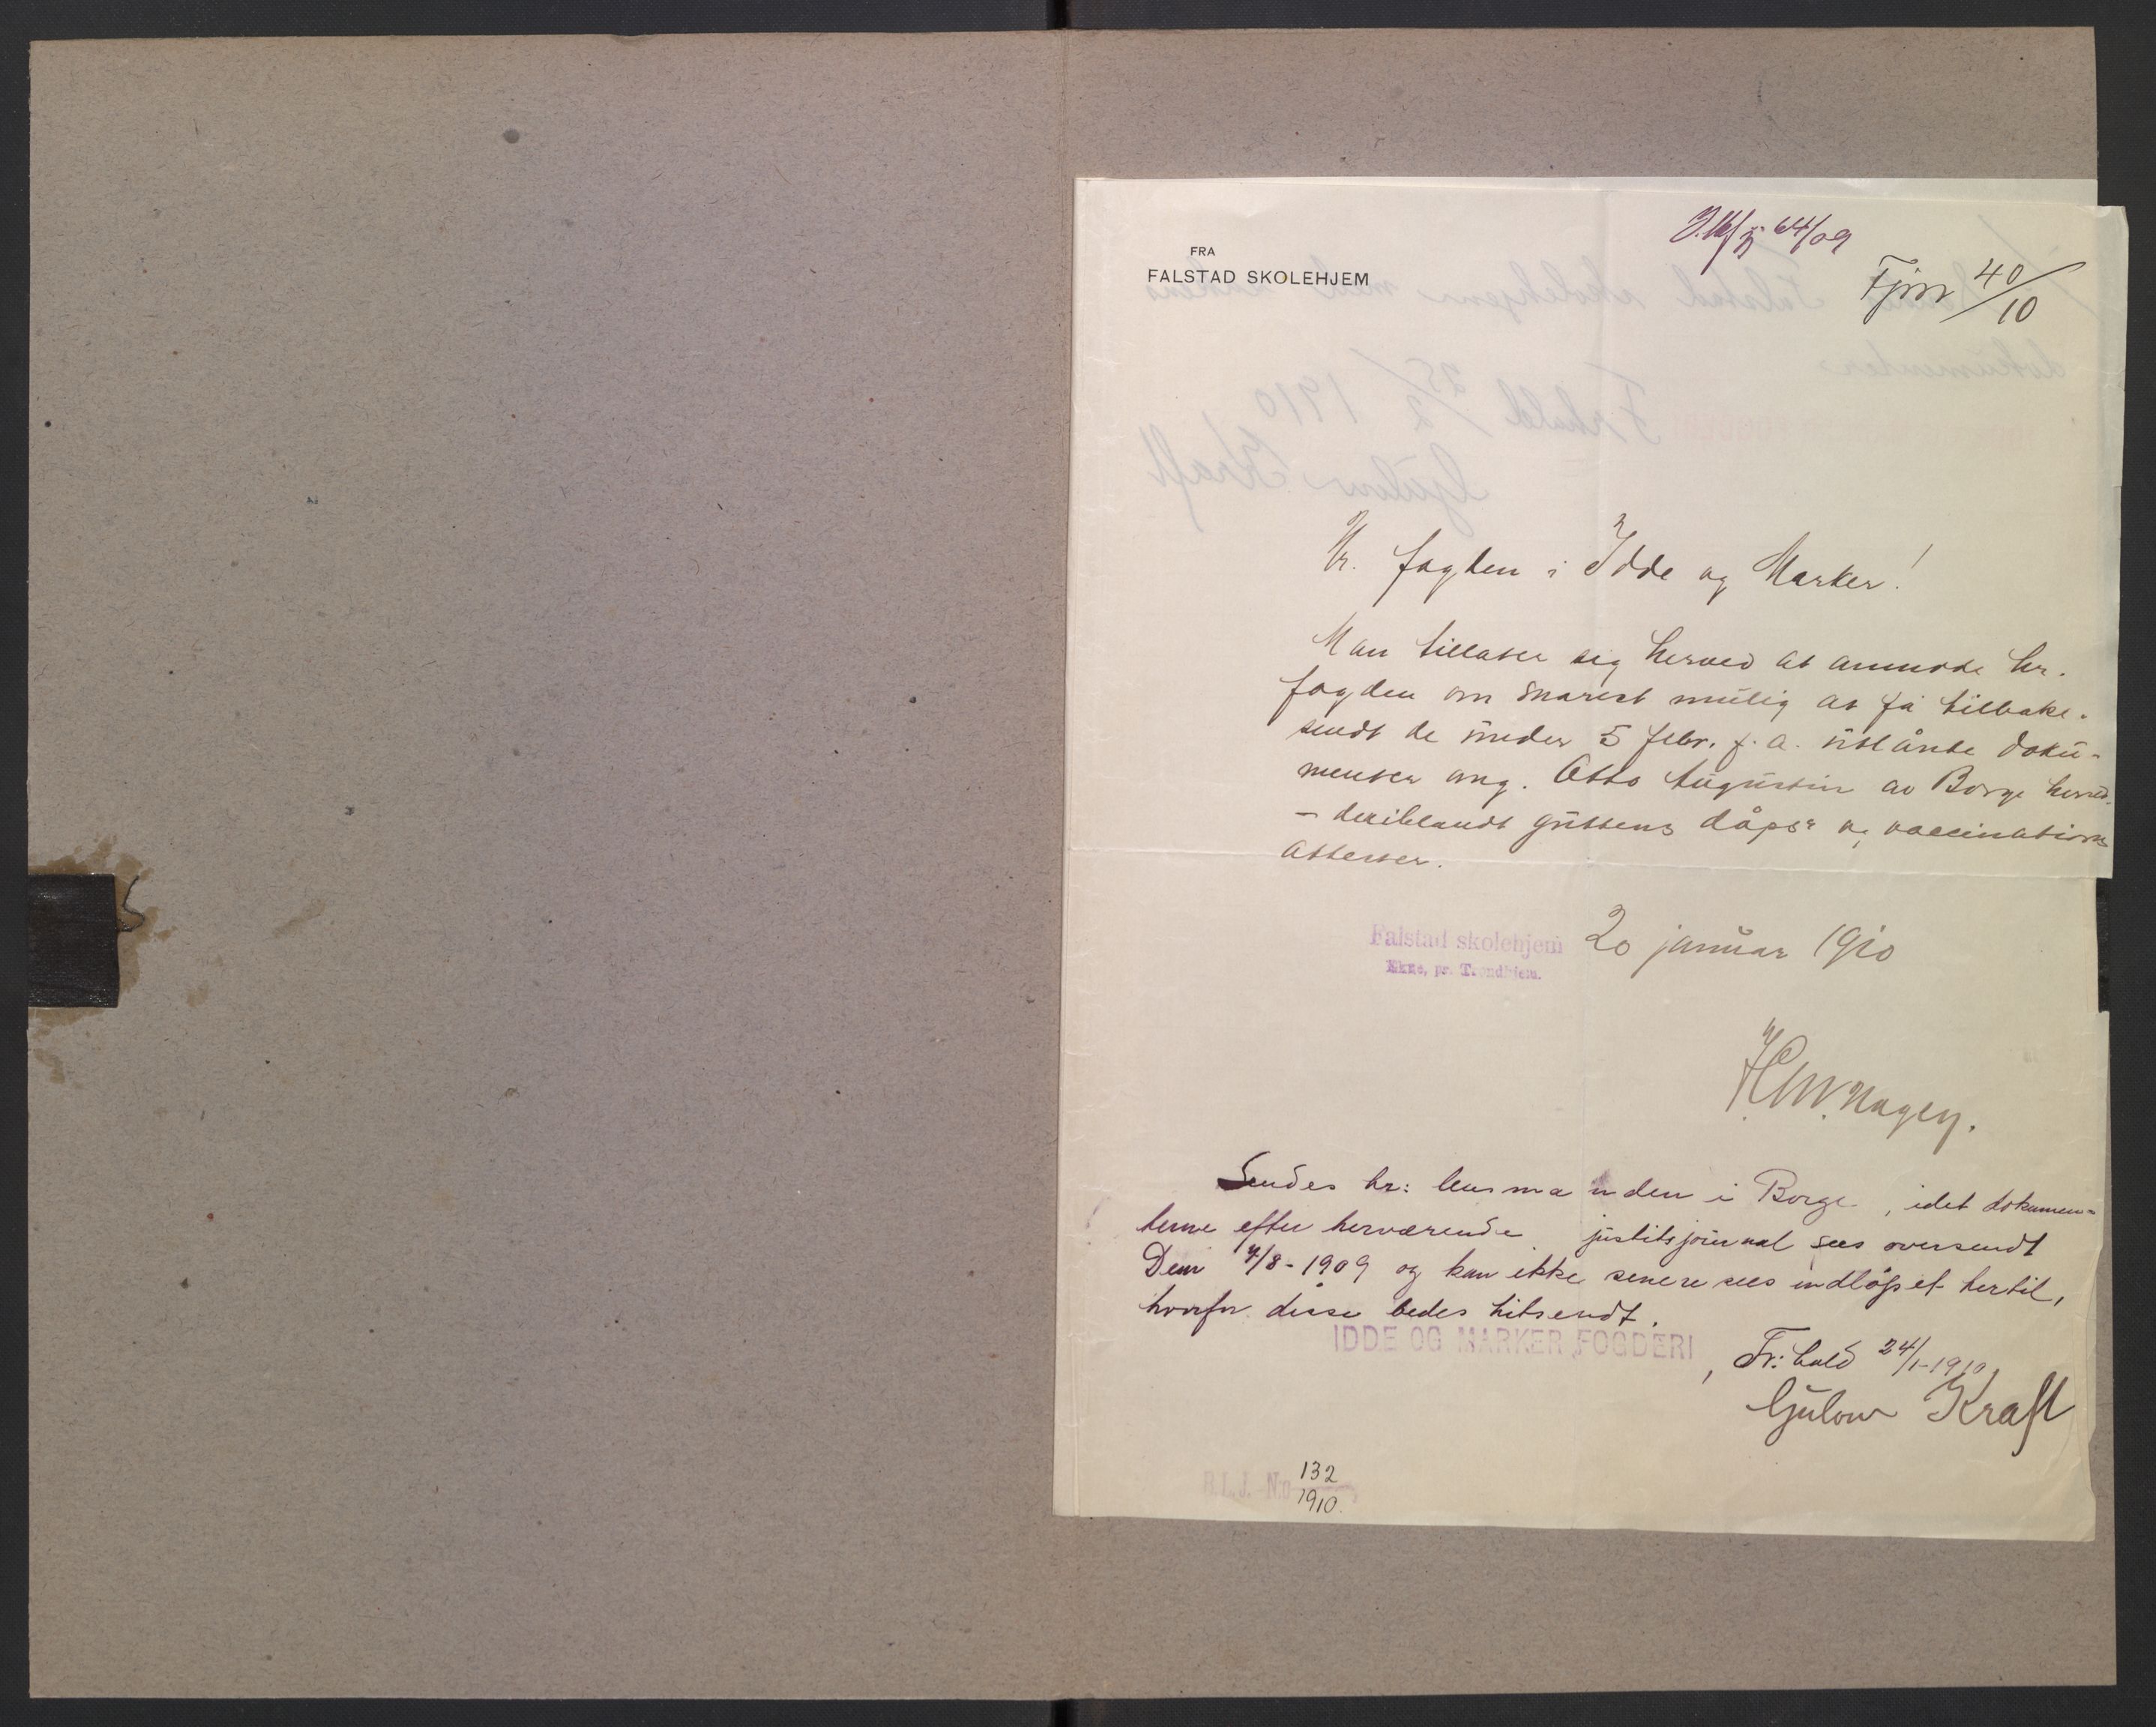 64/09
FRA
FALSTAD SKOLEHJEM
Fjnr 40/10
Hr. fogden i Idde og Marker!
Man tillater sig herved at anmode hr.
fogden om snarest mulig at få tilbake-
sendt de under 5 febr. f. a. utlånte doku-
menter ang. Otto Augustin av Borge herred.
- deriblandt guttens dåps- og vaccinations
attester.
Falstad skolehjem 20 januar 1910
Ekne, pr. Trondhjem.
Sendes hr: lensmanden i Borge, idet dokumen-
terne efter herværende justitsjournal sees oversendt
Dem 4/8-1909 og kan ikke senere sees indløpet hertil,
hvorfor disse bedes hitsendt.
IDDE OG MARKER FOGDERI, Fr: hald 24/1-1910
Gulow Kraft
B.L.J. No 132
1910.